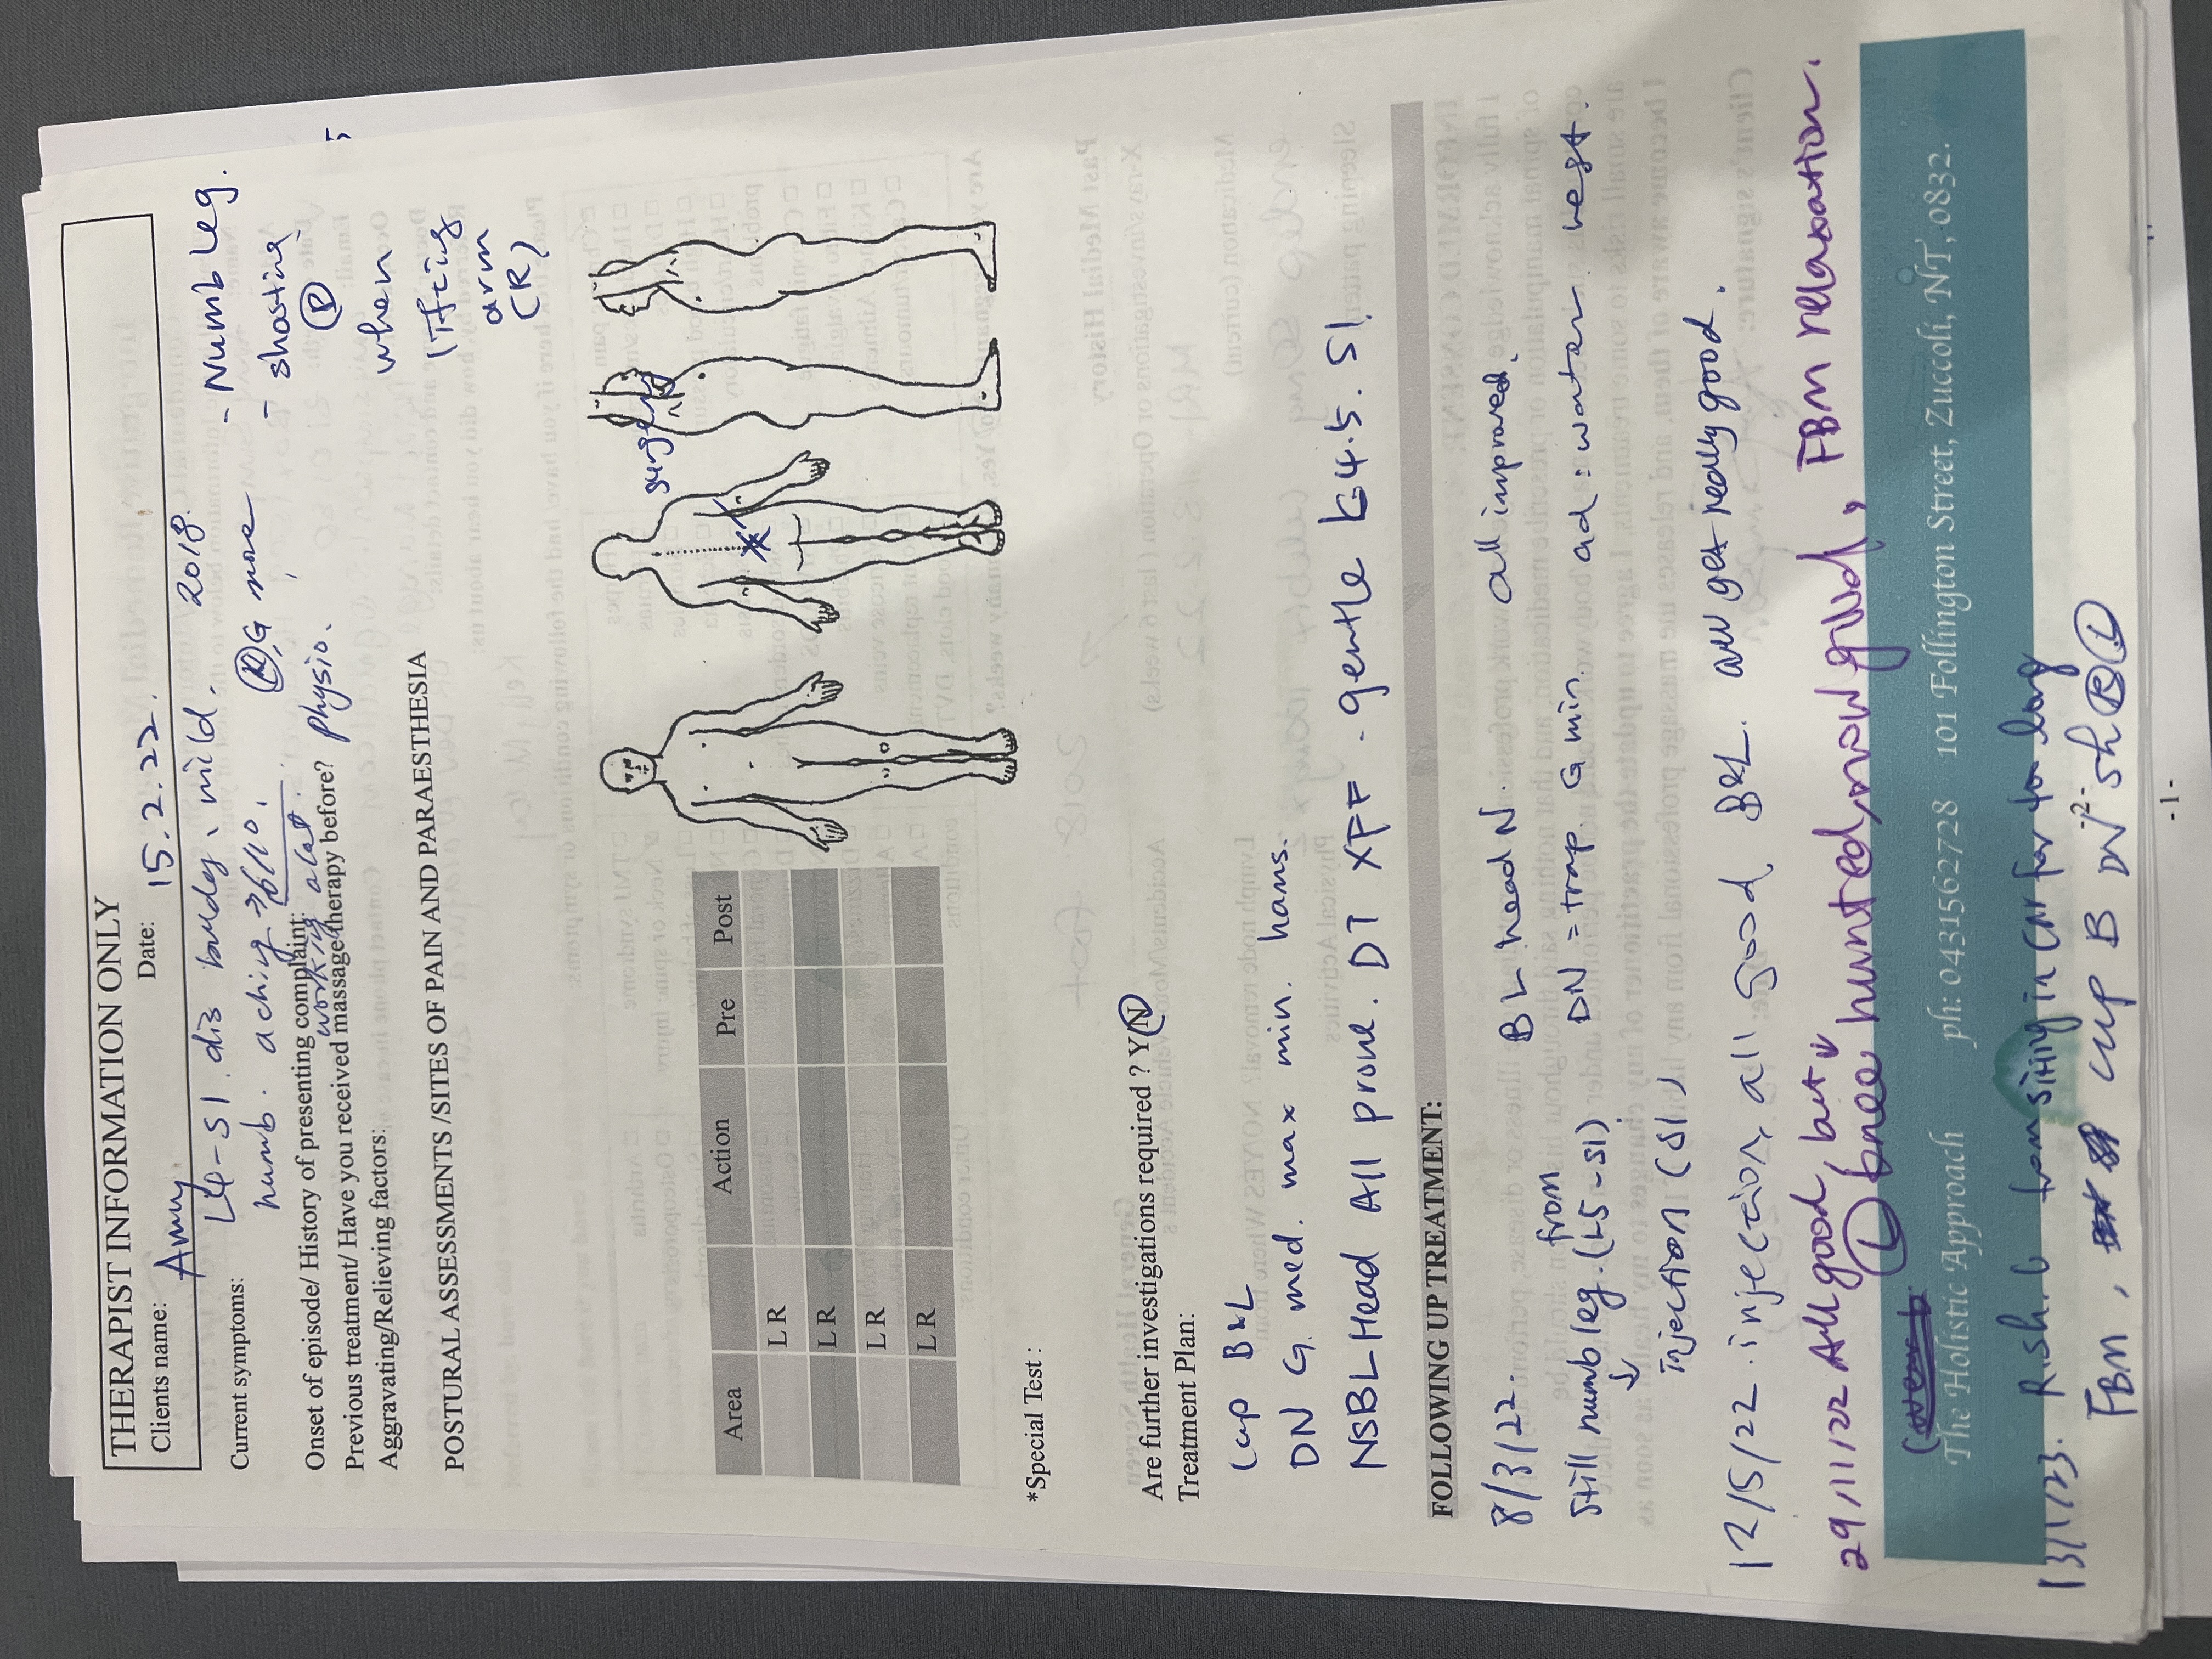 THERAPIST INFORMATION ONLY
Clients name: Amy Date: 15.2.22.
Current symptoms: L4-S1. dis buldg, mild. 2018. - Numb Leg.
numb. aching 6/10. (R), G more - shooting
(P)
when
lifting
arm
(R)
Onset of episode/ History of presenting complaint: working alot.
Previous treatment/ Have you received massage therapy before? physio.
Aggravating/Relieving factors:
POSTURAL ASSESSMENTS /SITES OF PAIN AND PARAESTHESIA
Area Action Pre Post
L R
L R
L R
L R
surgery
*Special Test :
Are further investigations required ? Y N
Treatment Plan:
Cup B&L
DN G. med. max min. hams.
NSBL Head All prone. DT XFF - gentle L4.5. S1.
FOLLOWING UP TREATMENT:
8/3/22. BL head N. all improved.
still numb leg. from (L5-S1) DN = trap. G min. ad: water rest.
↓
injection (S1)
12/5/22. injection, all good B&L. all get really good.
29/11/22 All good, but (L) knee hunted, now good, FBM relaxation.
The Holistic Approach ph: 0431562728 101 Follington Street, Zuccoli, NT, 0832.
13/1/23. R. sh. from sitting in car for too long
FBM, cup B DN sh (R) (L)
-2-
-1-